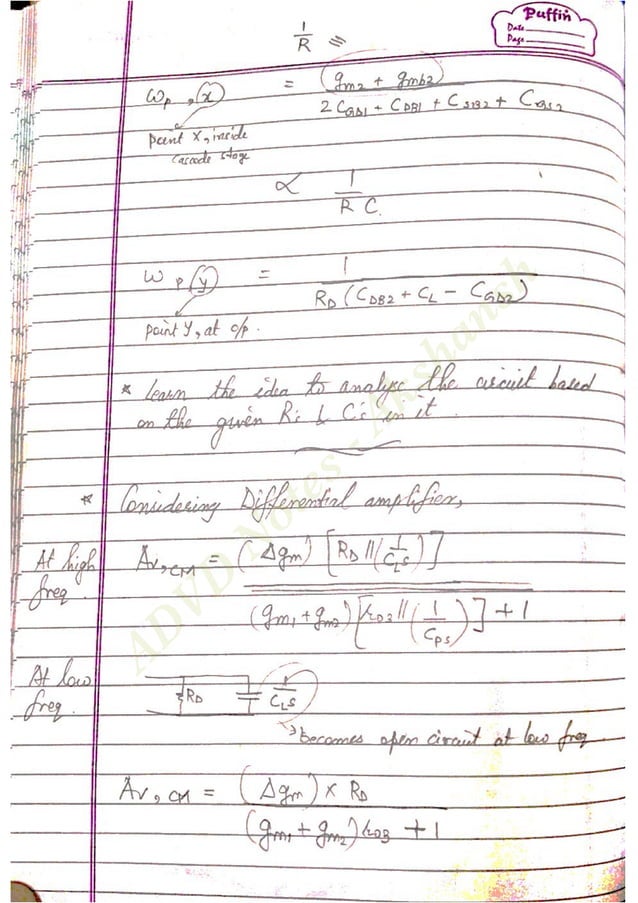 Puffin
Date
Page
1/R
ω_p,(x) = (g_m2 + g_mb2) / (2C_GD1 + C_DB1 + C_SB2 + C_GS2)
point X, inside
cascode stage
∝ 1 / R C.
ω_p(y) = 1 / R_D (C_DB2 + C_L - C_GD2)
point Y, at o/p.
* Learn the idea to analyse the circuit based
on the given R's & C's in it.
* Considering Differential amplifier,
At high freq. A_v,CM = (Δg_m) [R_D || (1/C_L s)] / (g_m1 + g_m2) [r_o3 || (1/C_p s)] + 1
At low freq. R_D 1/C_L s
→ becomes open circuit at low freq
A_v,CM = (Δg_m) × R_D / (g_m1 + g_m2) r_o3 + 1
ADVD Notes - Akshansh